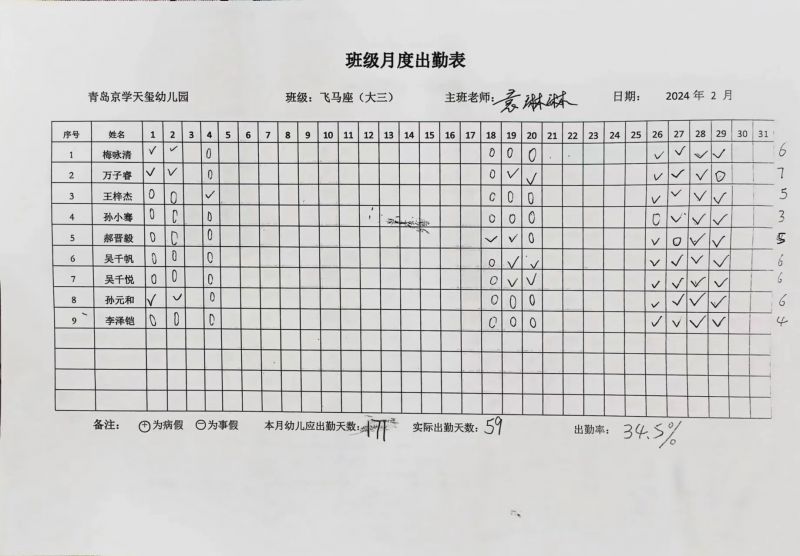 班级月度出勤表
青岛京学天玺幼儿园 班级：飞马座（大三） 主班老师：袁琳琳 日期： 2024 年 2 月
序号 姓名 1 2 3 4 5 6 7 8 9 10 11 12 13 14 15 16 17 18 19 20 21 22 23 24 25 26 27 28 29 30 31
1 梅咏清 ✓ ✓ 0 0 0 0 ✓ ✓ ✓ ✓ 6
2 万子睿 ✓ ✓ 0 0 ✓ ✓ ✓ ✓ ✓ 0 7
3 王梓杰 0 0 ✓ 0 0 0 ✓ ✓ ✓ ✓ 5
4 孙小骞 0 0 0 0 0 0 0 ✓ ✓ ✓ 3
5 郝晋毅 0 0 0 ✓ ✓ 0 ✓ 0 ✓ ✓ 5
6 吴千帆 0 0 0 0 ✓ ✓ ✓ ✓ ✓ ✓ 6
7 吴千悦 0 0 0 0 ✓ ✓ ✓ ✓ ✓ ✓ 6
8 孙元和 ✓ ✓ 0 0 0 0 ✓ ✓ ✓ ✓ 6
9 李泽铠 0 0 0 0 0 0 ✓ ✓ ✓ ✓ 4
备注： ⊕为病假 ⊖为事假 本月幼儿应出勤天数：171 实际出勤天数：59 出勤率：34.5%